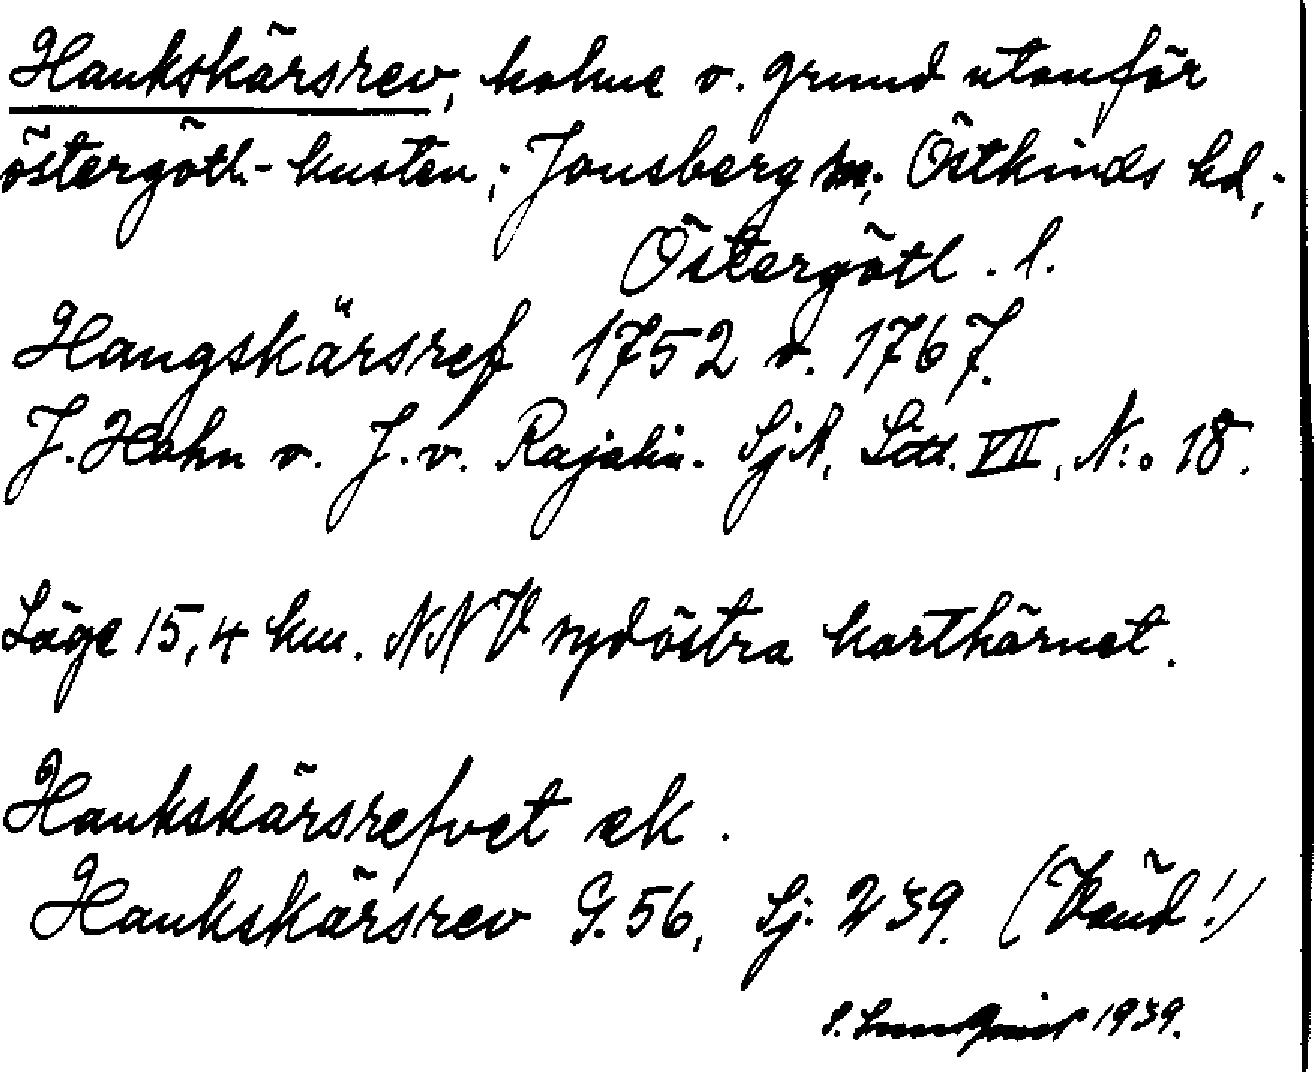 Haukskärsrev, holme o. grund utanför
östergötl.- kusten; Jonsberg sn; Östkinds hd,;
Östergötl. l.
Haugskärsref 1752 o. 1767.
J. Hahn o. J. v. Rajalin. SjA, Litt. VII, N:o 18.
Läge 15,4 km. NNV sydöstra karthörnet.
Haukskärsrefvet ek.
Haukskärsrev G. 56, Sj: 239. (Vänd!)
1939.